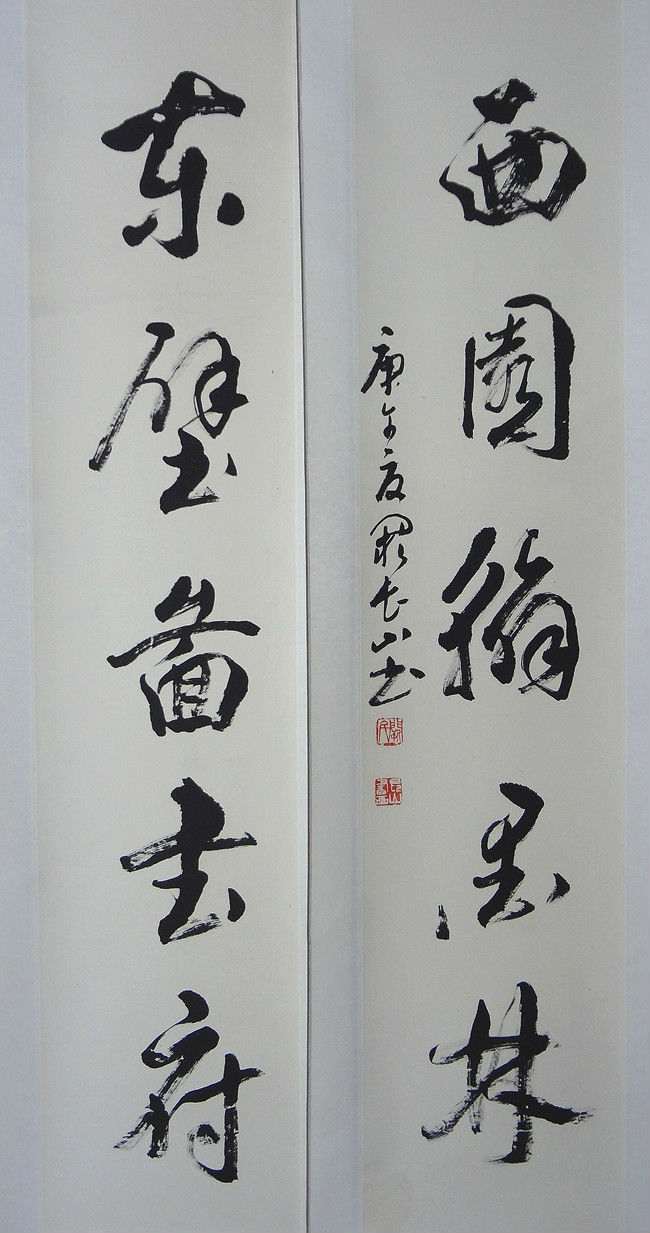 西園翰墨林
庚午夏關長山書
東壁圖書府